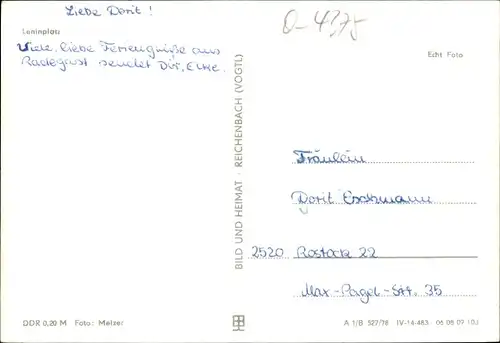 Liebe Dorit!
Leninplatz
Viele, liebe Feriengrüße aus
Radegast sendet Dir, Elke.
D-4375
Echt Foto
BILD UND HEIMAT · REICHENBACH (VOGTL)
Fräulein
Dorit
2520 Rostock 22
Max-Pagel-Str. 35
DDR 0,20 M Foto: Melzer
A 1/B 527/78 IV-14-483 06 08 07 103